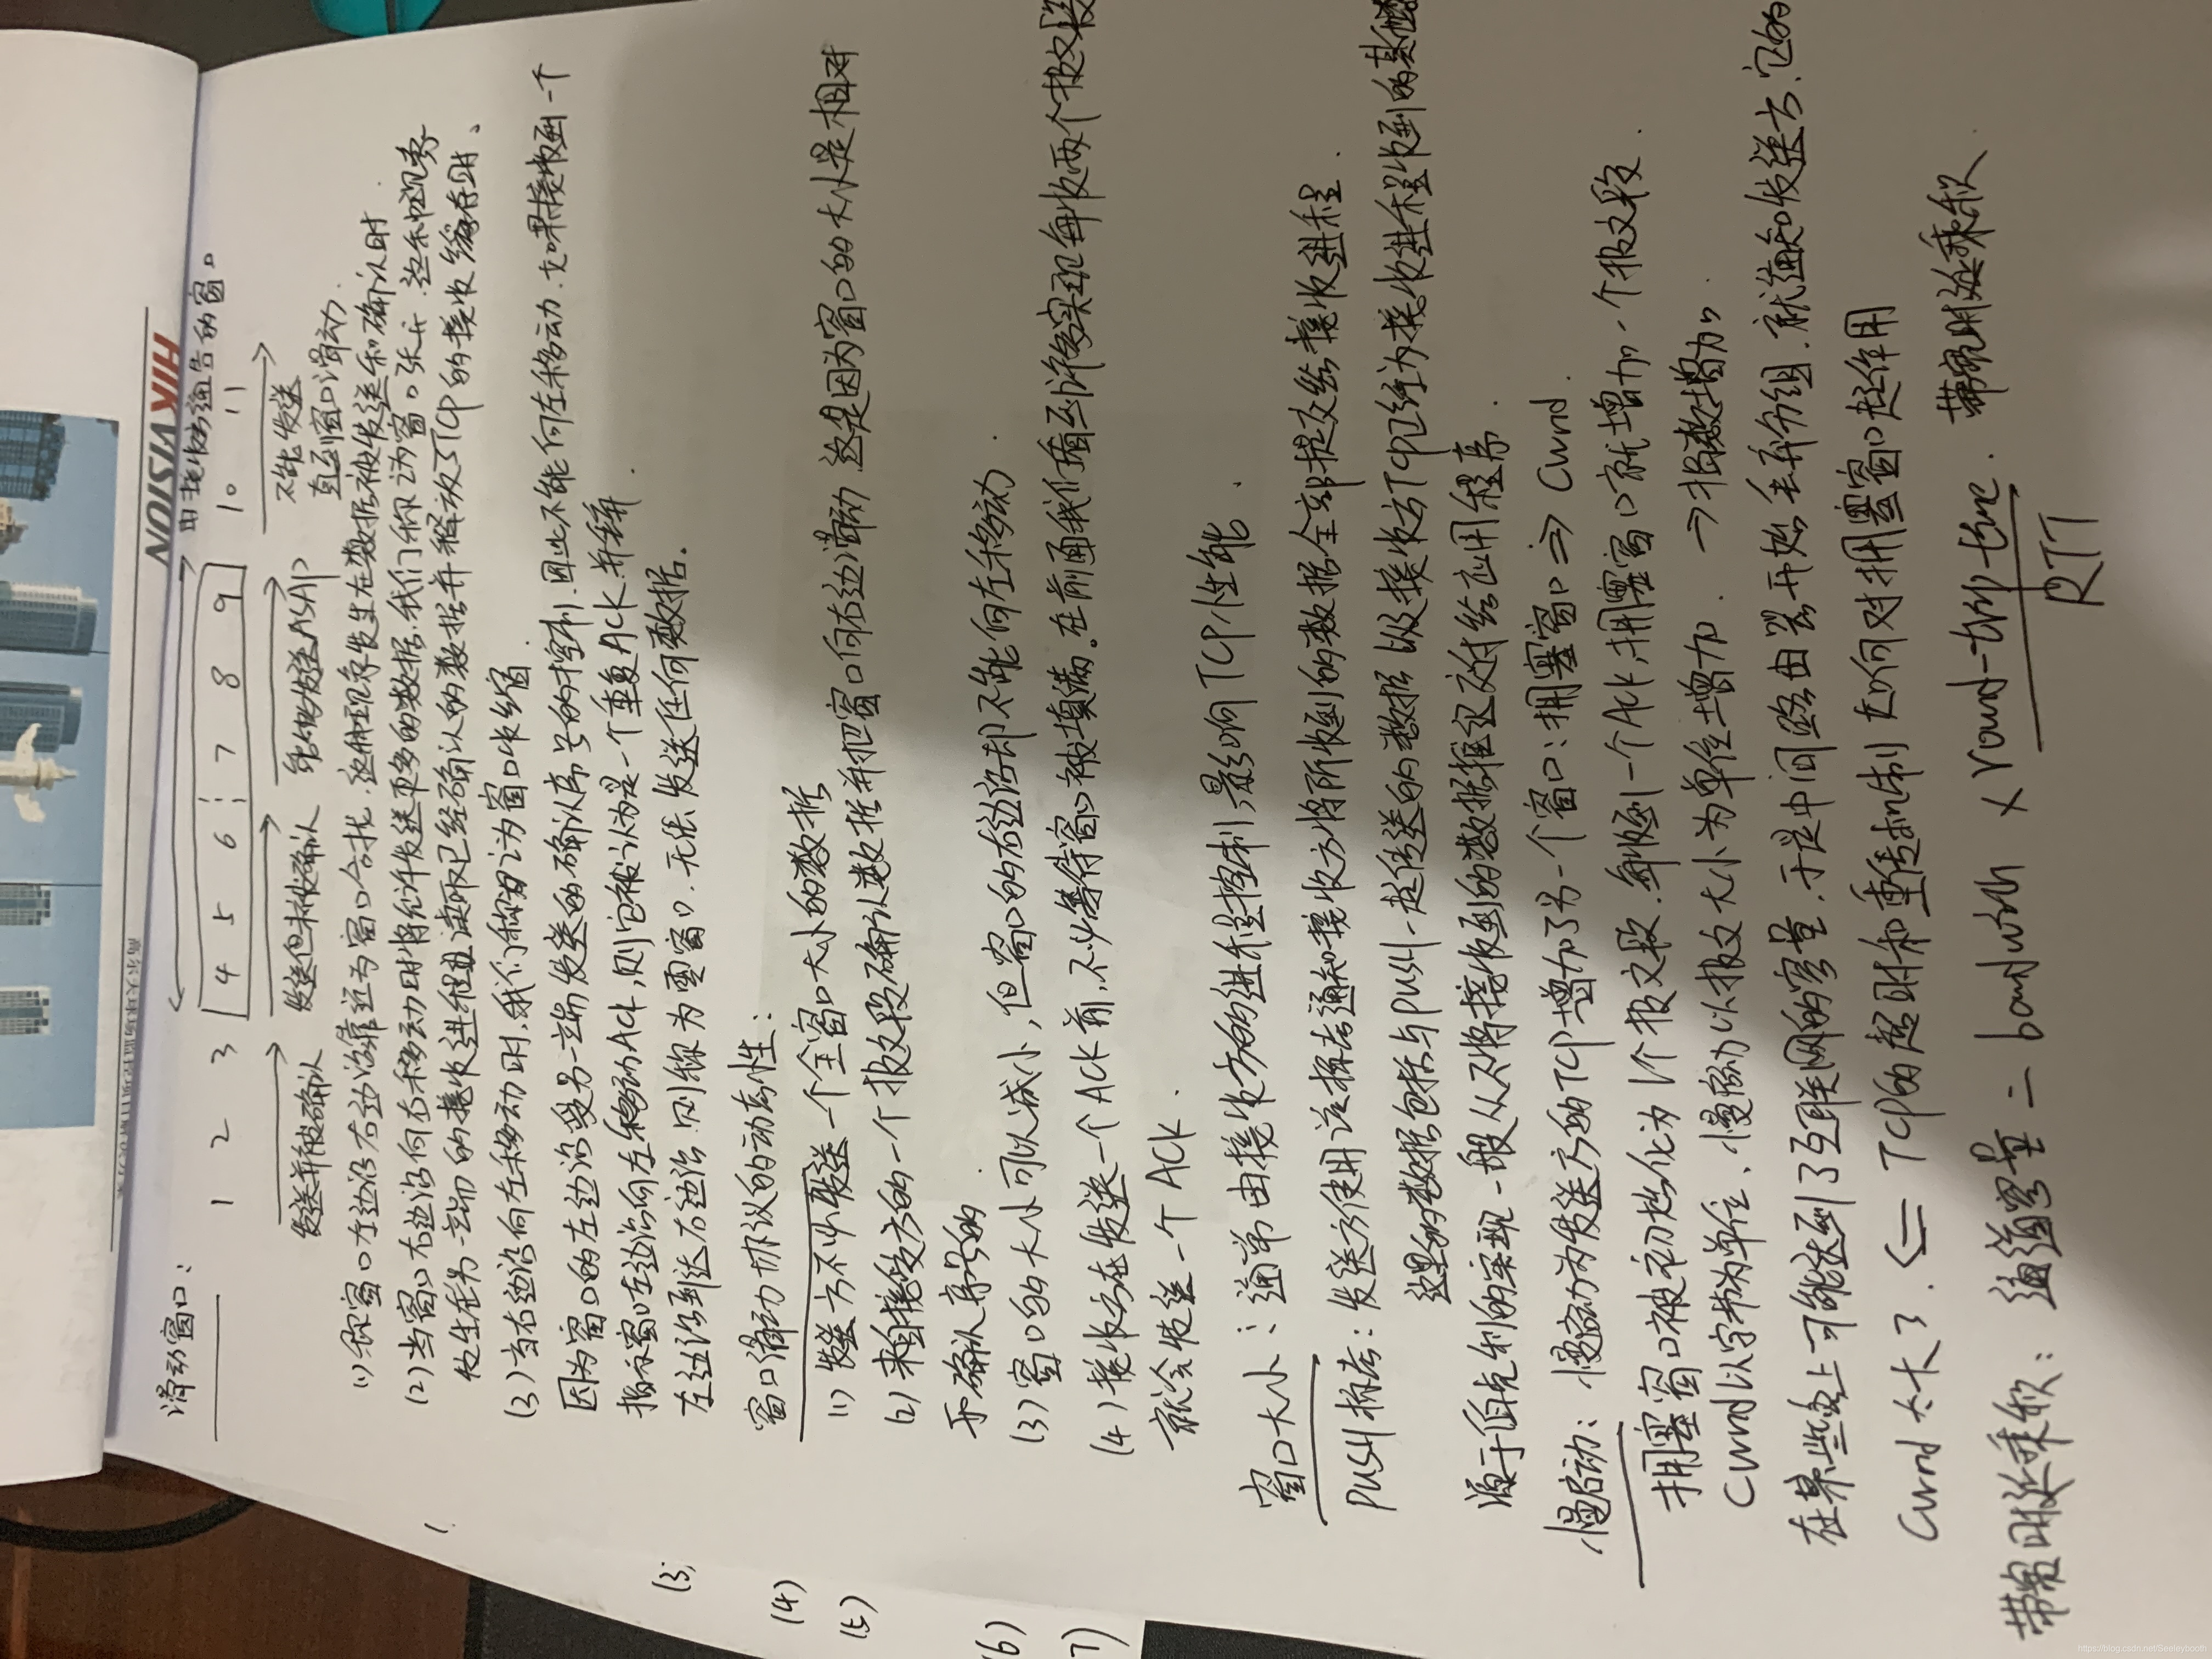 HIKVISION
滑动窗口:
由接收方通告的窗口
1 2 3 4 5 6 7 8 9 10 11
发送并被确认
发送但未被确认
能够发送ASAP
不能发送
直到窗口滑动.
(1) 称窗口左边沿右边沿靠近为窗口合拢.这种现象发生在数据被发送和确认时.
(2) 当窗口右边沿向右移动时将允许发送更多的数据.我们称这为窗口张开.这种现象
发生在另一端的接收进程读取已经确认的数据并释放了TCP的接收缓存时。
(3) 当右边沿向左移动时,我们称之为窗口收缩.
因为窗口的左边沿受另一端发送的确认序号的控制.因此不能向左移动.如果接收到一个
指示窗口左边沿向左移动的ACK,则它被认为是一个重复ACK,并丢弃.
左边沿到达右边沿.则称为零窗口.无法发送任何数据。
窗口滑动协议的动态性:
(1) 发送方不必发送一个全窗口大小的数据
(2) 来自接受方的一个报文段确认数据并把窗口向右边滑动.这是因为窗口的大小是相对
于确认序号的
(3) 窗口的大小可以减小,但窗口的右边沿却不能向左移动
(4) 接收方在发送一个ACK前,不必等待窗口被填满。在前面我们看到许多实现每收两个报文段
就会发送一个ACK.
窗口大小:通常由接收方的进程控制,影响TCP性能.
PUSH标志:发送方使用该标志通知接收方将所收到的数据全部提交给接收进程.
这里的数据包括与PUSH一起传送的数据以及接收方TCP已经为接收进程收到的其他
源于伯克利的实现一般从不将接收到的数据推迟交付给应用程序.
慢启动:慢启动为发送方的TCP增加了另一个窗口:拥塞窗口 ⇒ cwnd.
拥塞窗口被初始化为1个报文段.每收到一个ACK,拥塞窗口就增加一个报文段.
cwnd以字节为单位.慢启动以报文大小为单位增加. → 指数增加.
在某些点上可能达到了互联网的容量.于是中间路由器开始丢弃分组.就通知发送方.它的
cwnd太大了. ⇐ TCP的超时和重传机制如何对拥塞窗口起作用
带宽时延乘积: 通道容量 = bandwith × round-trip time. 带宽时延乘积
RTT
(3)
(4)
(5)
(6)
7)
https://blog.csdn.net/Seeleybooth